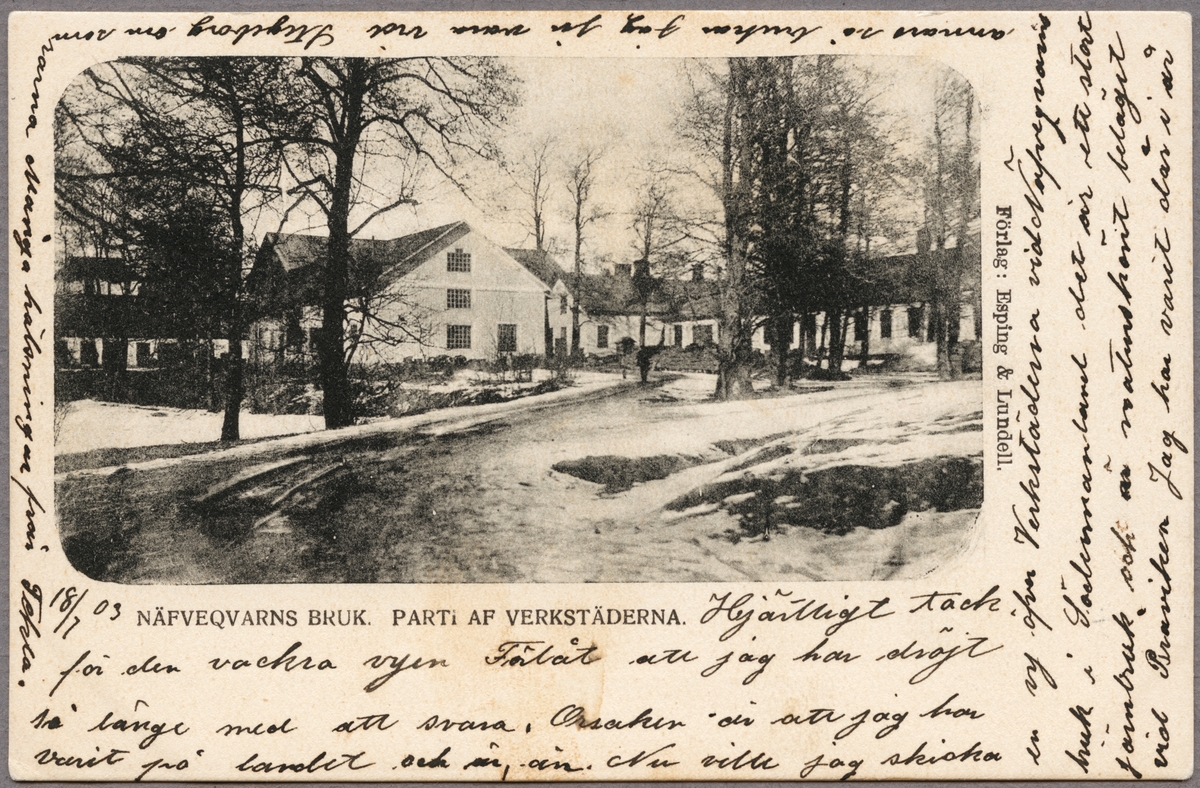 18/7 03
NÄFVEQVARNS BRUK. PARTI AF VERKSTÄDERNA.
Förlag: Esping & Lundell.
Hjärtligt tack
för den vackra vyen Förlåt att jag har dröjt
så länge med att svara. Orsaken är att jag har
varit på landet och är, än. Nu ville jag skicka
en vy öfver Verkstäderna vid Näfveqvarns
bruk i Södermanland det är ett stort
järnbruk och är naturskönt beläget
vid Braviken Jag har varit där i år
annars så brukar jag ju vara vid Stegeborg om som
rarna många hälsningar från Tekla.